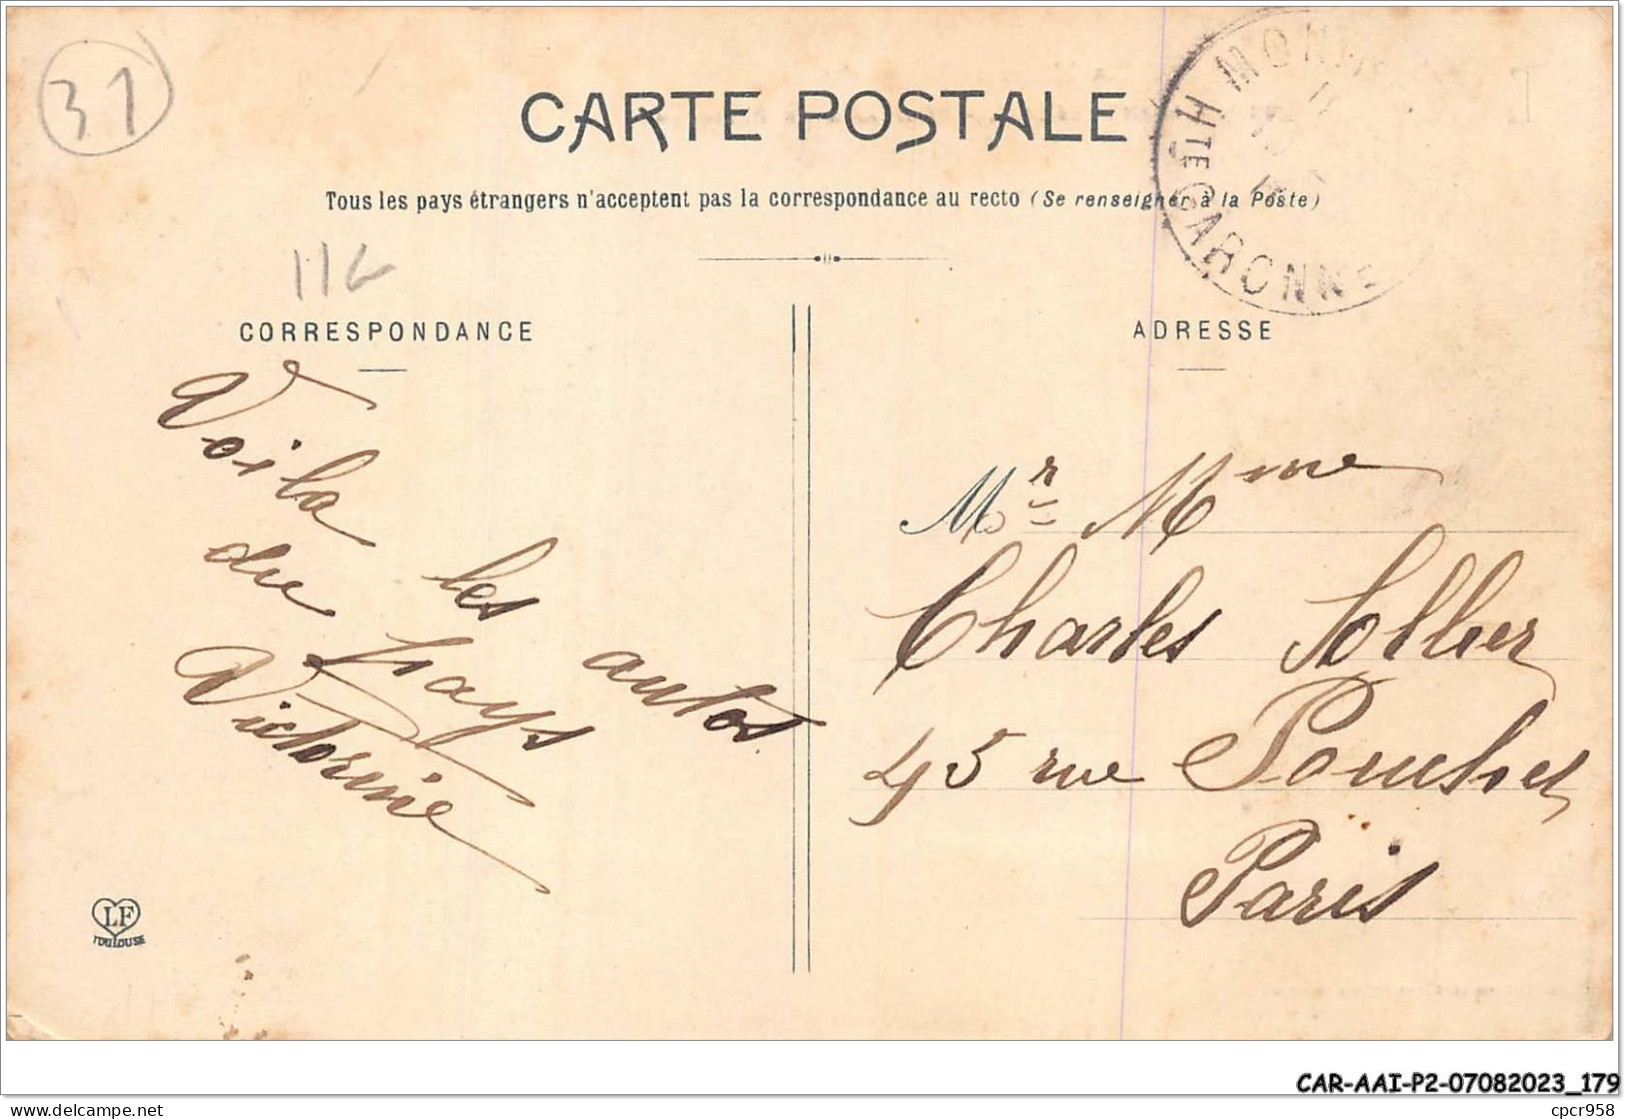 31
CARTE POSTALE
Tous les pays étrangers n'acceptent pas la correspondance au recto (Se renseigner à la Poste)
HTE GARONNE
CORRESPONDANCE
Voila les autos
du pays
Victorine
LF
TOULOUSE
ADRESSE
Mr Mme
Charles Sollier
45 rue Pouchet
Paris
CAR-AAI-P2-07082023_179
delcampe.net
cpcr958